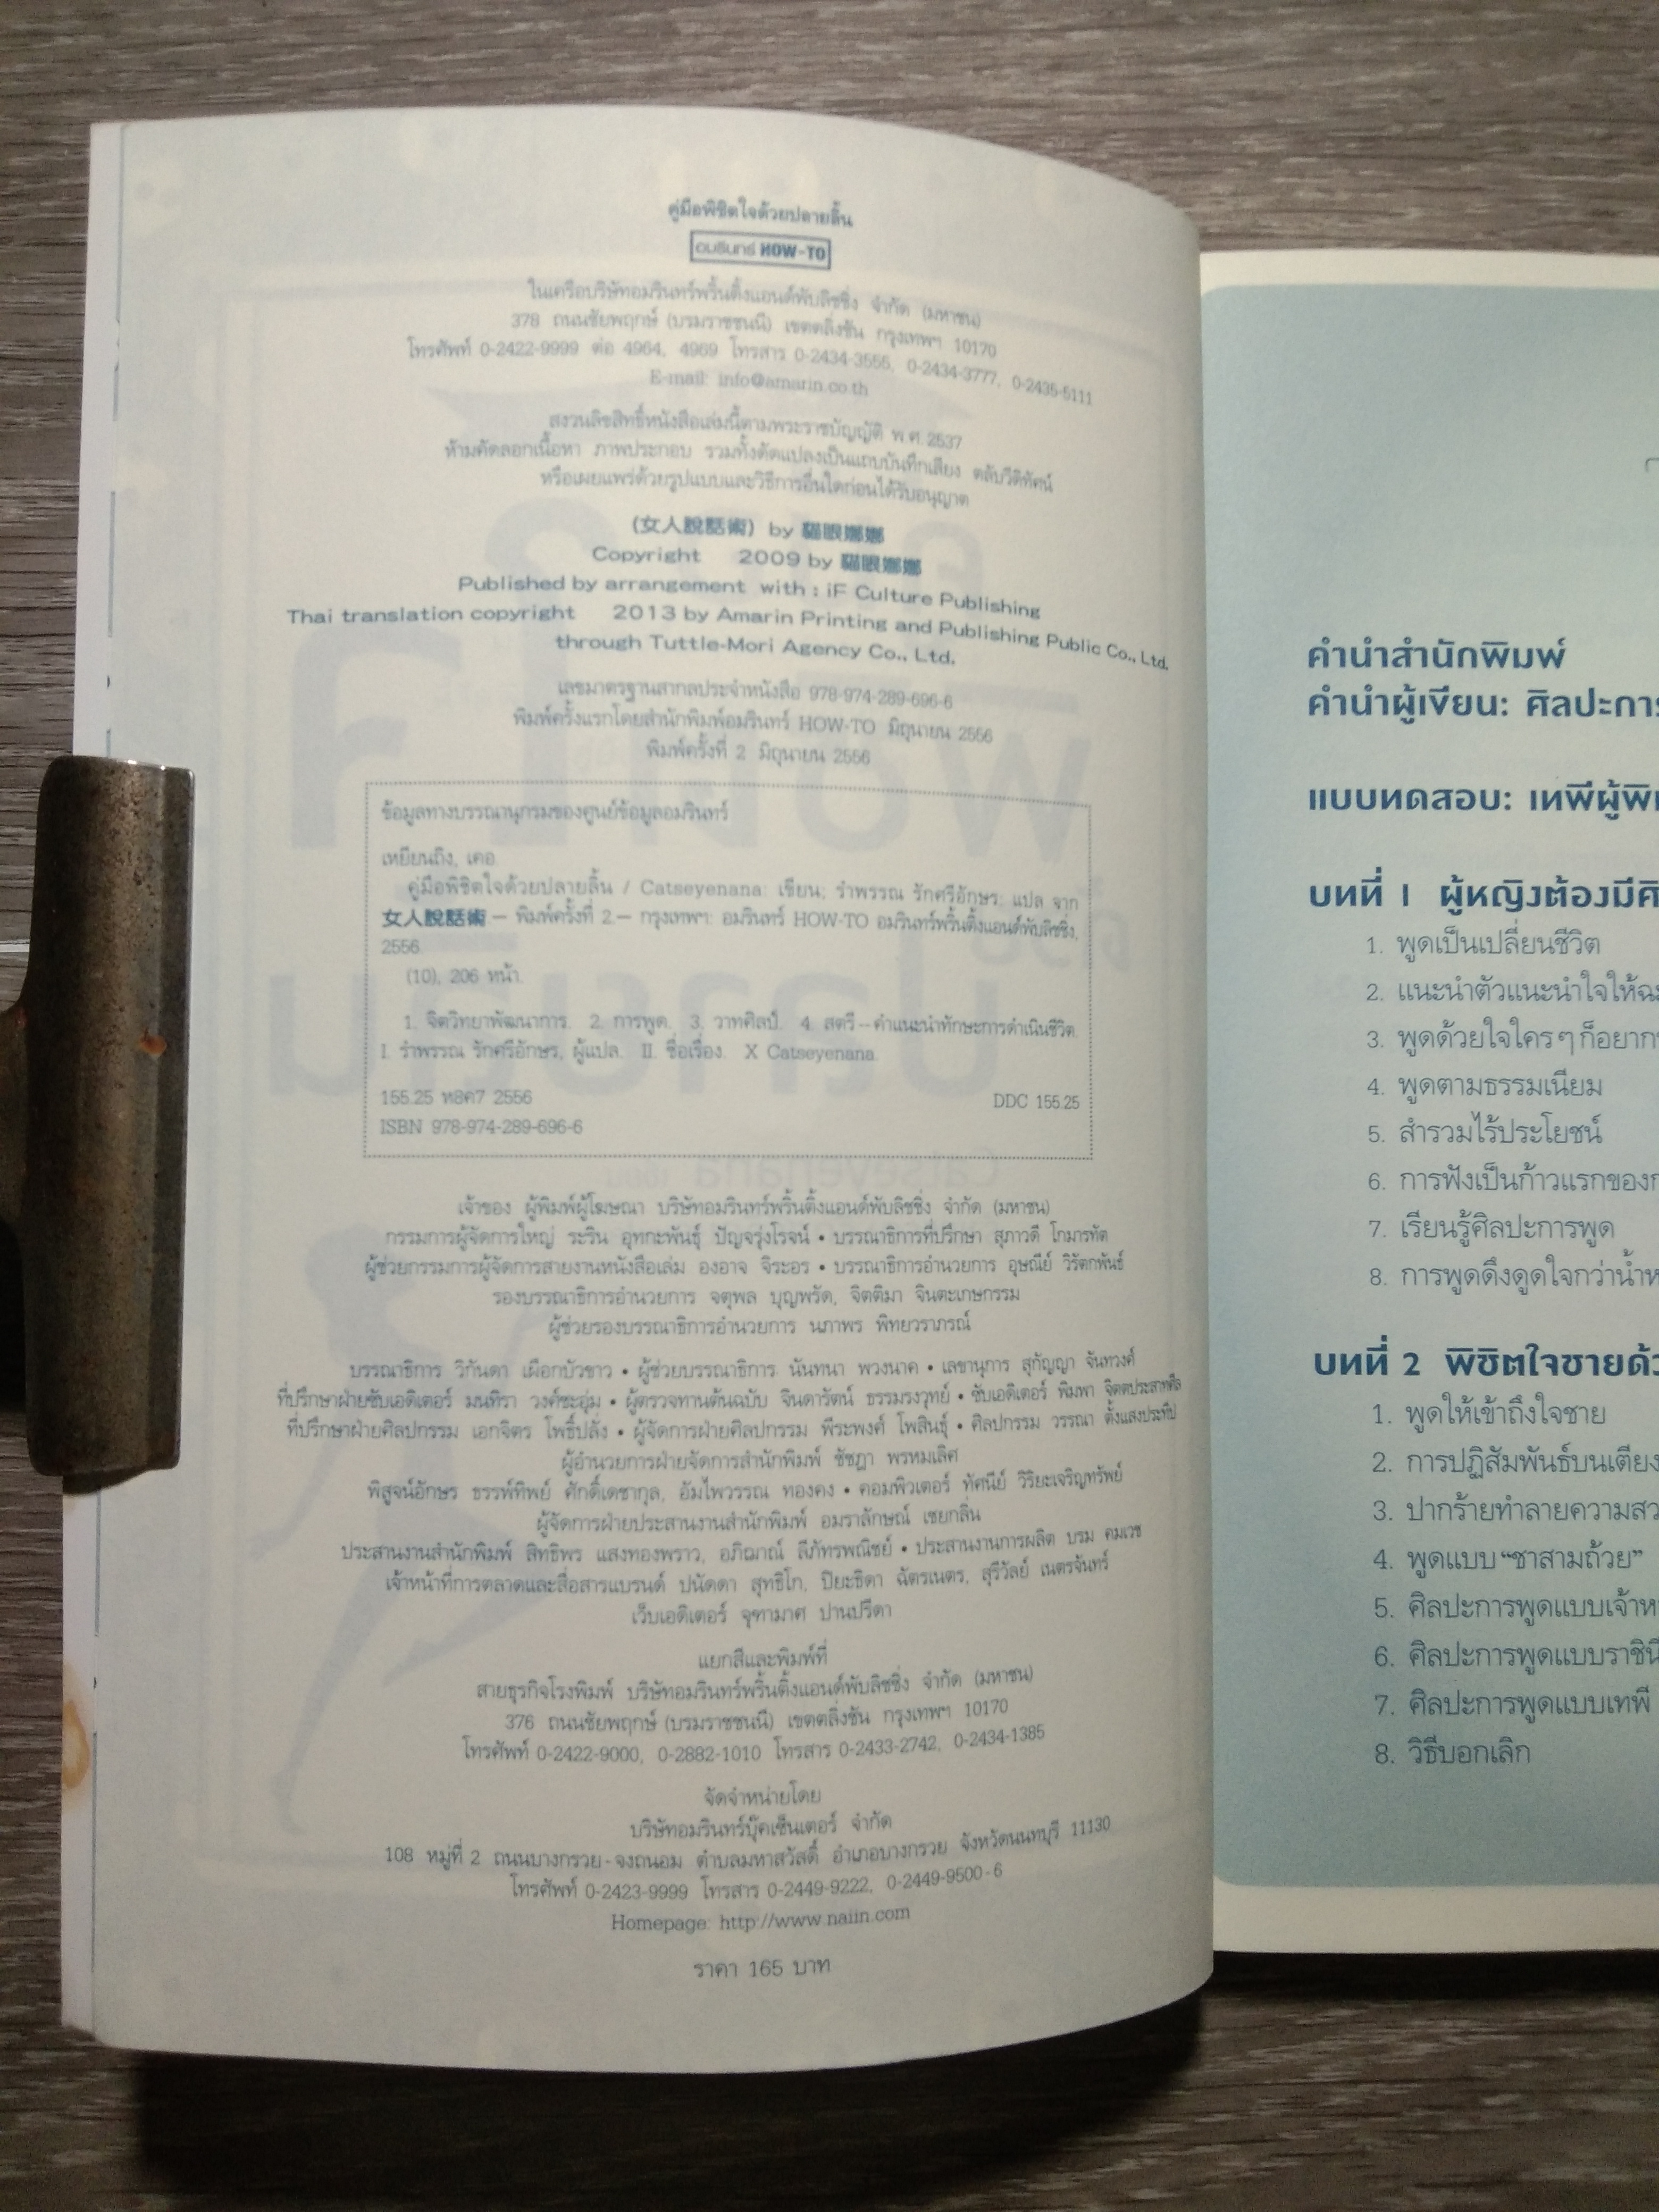 คู่มือพิชิตใจด้วยปลายลิ้น
อมรินทร์ HOW-TO
ในเครือบริษัทอมรินทร์พริ้นติ้งแอนด์พับลิชชิ่ง จำกัด (มหาชน)
378 ถนนชัยพฤกษ์ (บรมราชชนนี) เขตตลิ่งชัน กรุงเทพฯ 10170
โทรศัพท์ 0-2422-9999 ต่อ 4964, 4969 โทรสาร 0-2434-3555, 0-2434-3777, 0-2435-5111
E-mail: info@amarin.co.th
สงวนลิขสิทธิ์หนังสือเล่มนี้ตามพระราชบัญญัติ พ.ศ. 2537
ห้ามคัดลอกเนื้อหา ภาพประกอบ รวมทั้งดัดแปลงเป็นแถบบันทึกเสียง ตลับวีดิทัศน์
หรือเผยแพร่ด้วยรูปแบบและวิธีการอื่นใดก่อนได้รับอนุญาต
(女人說話術) by 貓眼娜娜
Copyright 2009 by 貓眼娜娜
Published by arrangement with : iF Culture Publishing
Thai translation copyright 2013 by Amarin Printing and Publishing Public Co., Ltd.
through Tuttle-Mori Agency Co., Ltd.
เลขมาตรฐานสากลประจำหนังสือ 978-974-289-696-6
พิมพ์ครั้งแรกโดยสำนักพิมพ์อมรินทร์ HOW-TO มิถุนายน 2556
พิมพ์ครั้งที่ 2 มิถุนายน 2556
ข้อมูลทางบรรณานุกรมของศูนย์ข้อมูลอมรินทร์
เหยียนถิง, เคอ.
คู่มือพิชิตใจด้วยปลายลิ้น / Catseyenana: เขียน; รำพรรณ รักศรีอักษร: แปล จาก
女人說話術 – พิมพ์ครั้งที่ 2 – กรุงเทพฯ: อมรินทร์ HOW-TO อมรินทร์พริ้นติ้งแอนด์พับลิชชิ่ง,
2556
(10), 206 หน้า.
1. จิตวิทยาพัฒนาการ. 2. การพูด. 3. วาทศิลป์. 4. สตรี – คำแนะนำทักษะการดำเนินชีวิต.
I. รำพรรณ รักศรีอักษร, ผู้แปล. II. ชื่อเรื่อง. X Catseyenana.
155.25 ห8ค7 2556
DDC 155.25
ISBN 978-974-289-696-6
เจ้าของ ผู้พิมพ์ผู้โฆษณา บริษัทอมรินทร์พริ้นติ้งแอนด์พับลิชชิ่ง จำกัด (มหาชน)
กรรมการผู้จัดการใหญ่ ระริน อุทกะพันธุ์ ปัญจรุ่งโรจน์ • บรรณาธิการที่ปรึกษา สุภาวดี โกมารทัต
ผู้ช่วยกรรมการผู้จัดการสายงานหนังสือเล่ม องอาจ จิระอร • บรรณาธิการอำนวยการ อุษณีย์ วิรัตกพันธ์
รองบรรณาธิการอำนวยการ จตุพล บุญพรัด, จิตติมา จินตะเกษกรรม
ผู้ช่วยรองบรรณาธิการอำนวยการ นภาพร พิทยวราภรณ์
บรรณาธิการ วิกันดา เผือกบัวขาว • ผู้ช่วยบรรณาธิการ นันทนา พวงนาค • เลขานุการ สุกัญญา จันทวงศ์
ที่ปรึกษาฝ่ายซับเอดิเตอร์ มนทิรา วงศ์ชะอุ่ม • ผู้ตรวจทานต้นฉบับ จินดารัตน์ ธรรมรงวุทย์ • ซับเอดิเตอร์ พิมพา จิตตประสาทศีล
ที่ปรึกษาฝ่ายศิลปกรรม เอกจิตร โพธิ์ปลั่ง • ผู้จัดการฝ่ายศิลปกรรม พีระพงศ์ โพสินธุ์ • ศิลปกรรม วรรณา ตั้งแสงประทีป
ผู้อำนวยการฝ่ายจัดการสำนักพิมพ์ ชัชฎา พรหมเลิศ
พิสูจน์อักษร ธรรพ์ทิพย์ ศักดิ์เดชากุล, อัมไพวรรณ ทองคง • คอมพิวเตอร์ ทัศนีย์ วิริยะเจริญทรัพย์
ผู้จัดการฝ่ายประสานงานสำนักพิมพ์ อมราลักษณ์ เชยกลิ่น
ประสานงานสำนักพิมพ์ สิทธิพร แสงทองพราว, อภิฌาณ์ ลีภัทรพณิชย์ • ประสานงานการผลิต บรม คมเวช
เจ้าหน้าที่การตลาดและสื่อสารแบรนด์ ปนัดดา สุทธิโก, ปิยะธิดา ฉัตรเนตร, สุรีวัลย์ เนตรจันทร์
เว็บเอดิเตอร์ จุฑามาศ ปานปรีดา
แยกสีและพิมพ์ที่
สายธุรกิจโรงพิมพ์ บริษัทอมรินทร์พริ้นติ้งแอนด์พับลิชชิ่ง จำกัด (มหาชน)
376 ถนนชัยพฤกษ์ (บรมราชชนนี) เขตตลิ่งชัน กรุงเทพฯ 10170
โทรศัพท์ 0-2422-9000, 0-2882-1010 โทรสาร 0-2433-2742, 0-2434-1385
จัดจำหน่ายโดย
บริษัทอมรินทร์บุ๊คเซ็นเตอร์ จำกัด
108 หมู่ที่ 2 ถนนบางกรวย-จงถนอม ตำบลมหาสวัสดิ์ อำเภอบางกรวย จังหวัดนนทบุรี 11130
โทรศัพท์ 0-2423-9999 โทรสาร 0-2449-9222, 0-2449-9500-6
Homepage: http://www.naiin.com
ราคา 165 บาท
คำนำสำนักพิมพ์
คำนำผู้เขียน: ศิลปะการ
แบบทดสอบ: เทพีผู้พิ
บทที่ 1 ผู้หญิงต้องมีศิ
1. พูดเป็นเปลี่ยนชีวิต
2. แนะนำตัวแนะนำใจให้ฉ
3. พูดด้วยใจใครๆ ก็อยาก
4. พูดตามธรรมเนียม
5. สำรวมไร้ประโยชน์
6. การฟังเป็นก้าวแรกของ
7. เรียนรู้ศิลปะการพูด
8. การพูดดึงดูดใจกว่าน้ำห
บทที่ 2 พิชิตใจชายด้ว
1. พูดให้เข้าถึงใจชาย
2. การปฏิสัมพันธ์บนเตียง
3. ปากร้ายทำลายความสว
4. พูดแบบ “ชาสามถ้วย”
5. ศิลปะการพูดแบบเจ้าห
6. ศิลปะการพูดแบบราชินี
7. ศิลปะการพูดแบบเทพี
8. วิธีบอกเลิก